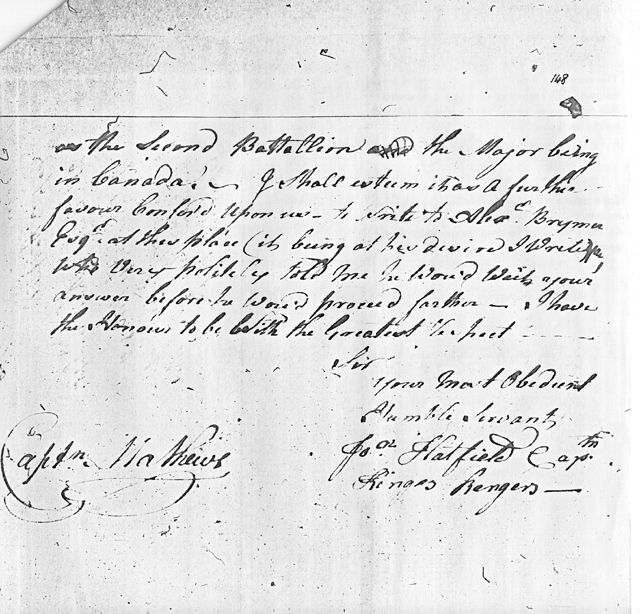 148
as the Second Battallion the Major being
in Canada. I Shall esteem it as a further
favour Conford Upon us - to write to Alexr Brymer
Esqr at this place (it being at his desire I Write
Who Very politely told me he Would Wait your
answer before he Would proceed farther - I have
the Honour to be With the Greatest Respect
Sir
your Most Obedient
Humble Servant
Jos Hatfield Captn
Kinges Rengers
Captn Mathews